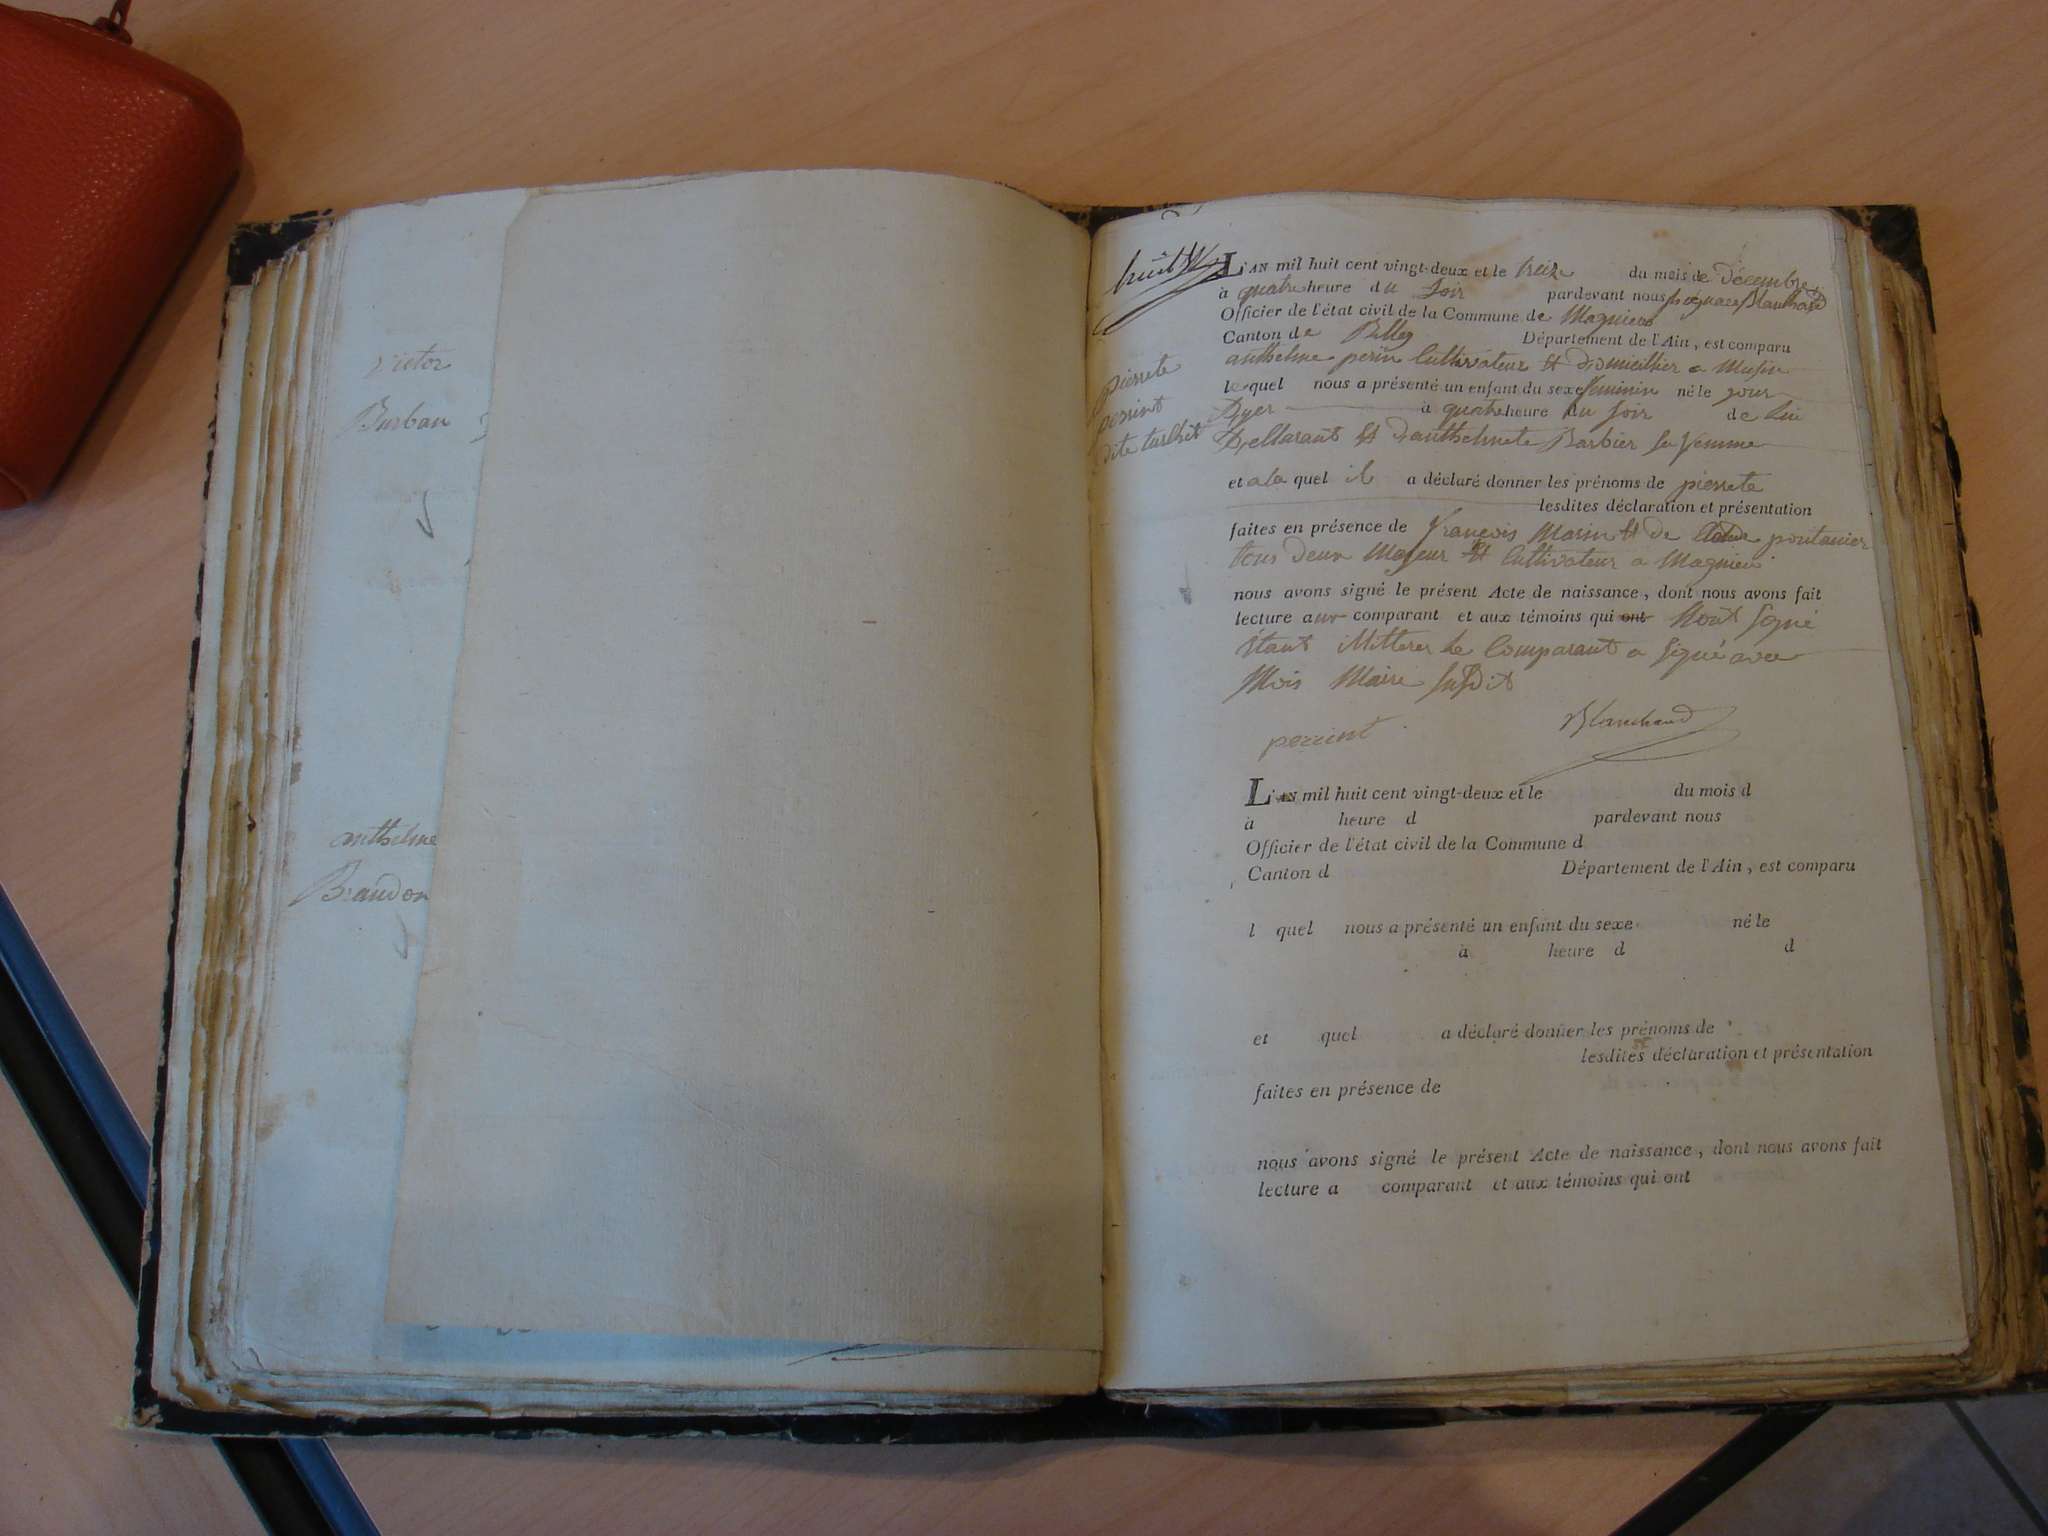 Victor
Burban
anthelme
Brandon
huit
Pierrete
perrint
dite turlhit
L'AN mil huit cent vingt-deux et le treize du mois de Décembre
à quatre heure du Soir pardevant nous
Officier de l'état civil de la Commune de Magnieu
Canton de Belley Département de l'Ain, est comparu
anthelme perin Cultivateur et Domicillier a Musin
le quel nous a présenté un enfant du sexe feminin né le jour
Dyer à quatre heure du soir de lui
Dellarant et Danthelmete Barbier sa femme
et a la quel il a déclaré donner les prénoms de pierrete
lesdites déclaration et présentation
faites en présence de françois Marin et de Claude pontanier
tous deux Majeur et Cultivateur a Magnieu
nous avons signé le présent Acte de naissance, dont nous avons fait
lecture aux comparant et aux témoins qui ont Nont signé
étant Mitterer le Comparant a signé avec
Mois Maire susdit
perrint
Blanchand
L'AN mil huit cent vingt-deux et le du mois d
à heure d pardevant nous
Officier de l'état civil de la Commune d
Canton d Département de l'Ain, est comparu
l quel nous a présenté un enfant du sexe né le
à heure d d
et quel a déclaré donner les prénoms de
lesdites déclaration et présentation
faites en présence de
nous avons signé le présent Acte de naissance, dont nous avons fait
lecture a comparant et aux témoins qui ont